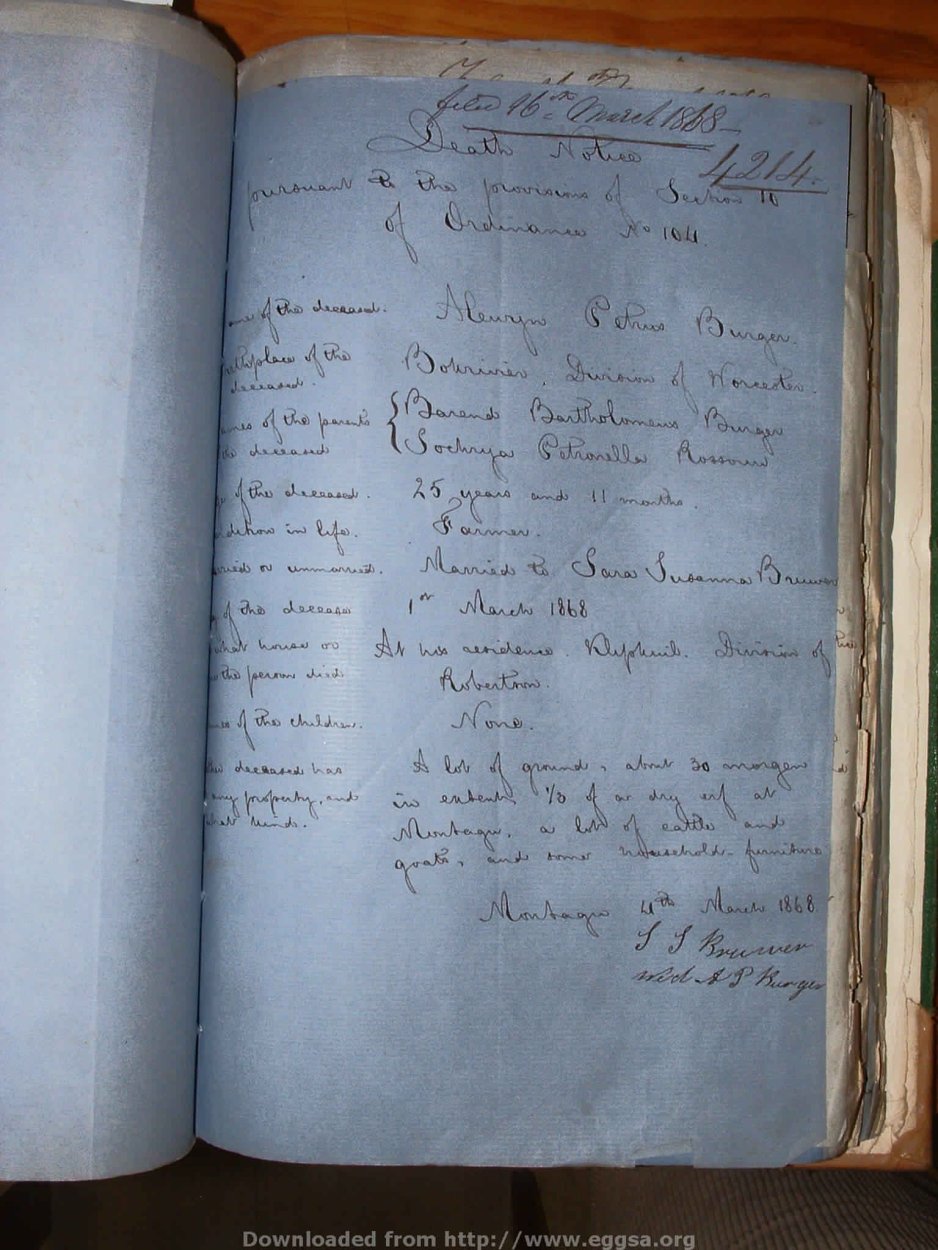 filed 16th March 1868
Death Notice
4214.
pursuant to the provisions of Section 10
of Ordinance No 104.
of the deceased. Alewyn Petrus Burger.
of the Division of Worcester.
deceased.
of the parents { Barend Bartholomeus Burger
deceased { Petronella Rossouw
of the deceased. 25 years and 11 months.
in life. Farmer.
or unmarried. Married to Sara Susanna Bruwer
of the decease 1st March 1868
what house or At his residence. Klipkuil. Division of
the person died Robertson.
of the children. None.
deceased has A lot of ground, about 30 morgen
any property, and in extent, 1/3 of a dry erf at
kind. Montagu, a lot of cattle and
goats, and some household furniture
Montagu 4th March 1868
S S Bruwer
wed A P Burger
Downloaded from http://www.eggsa.org